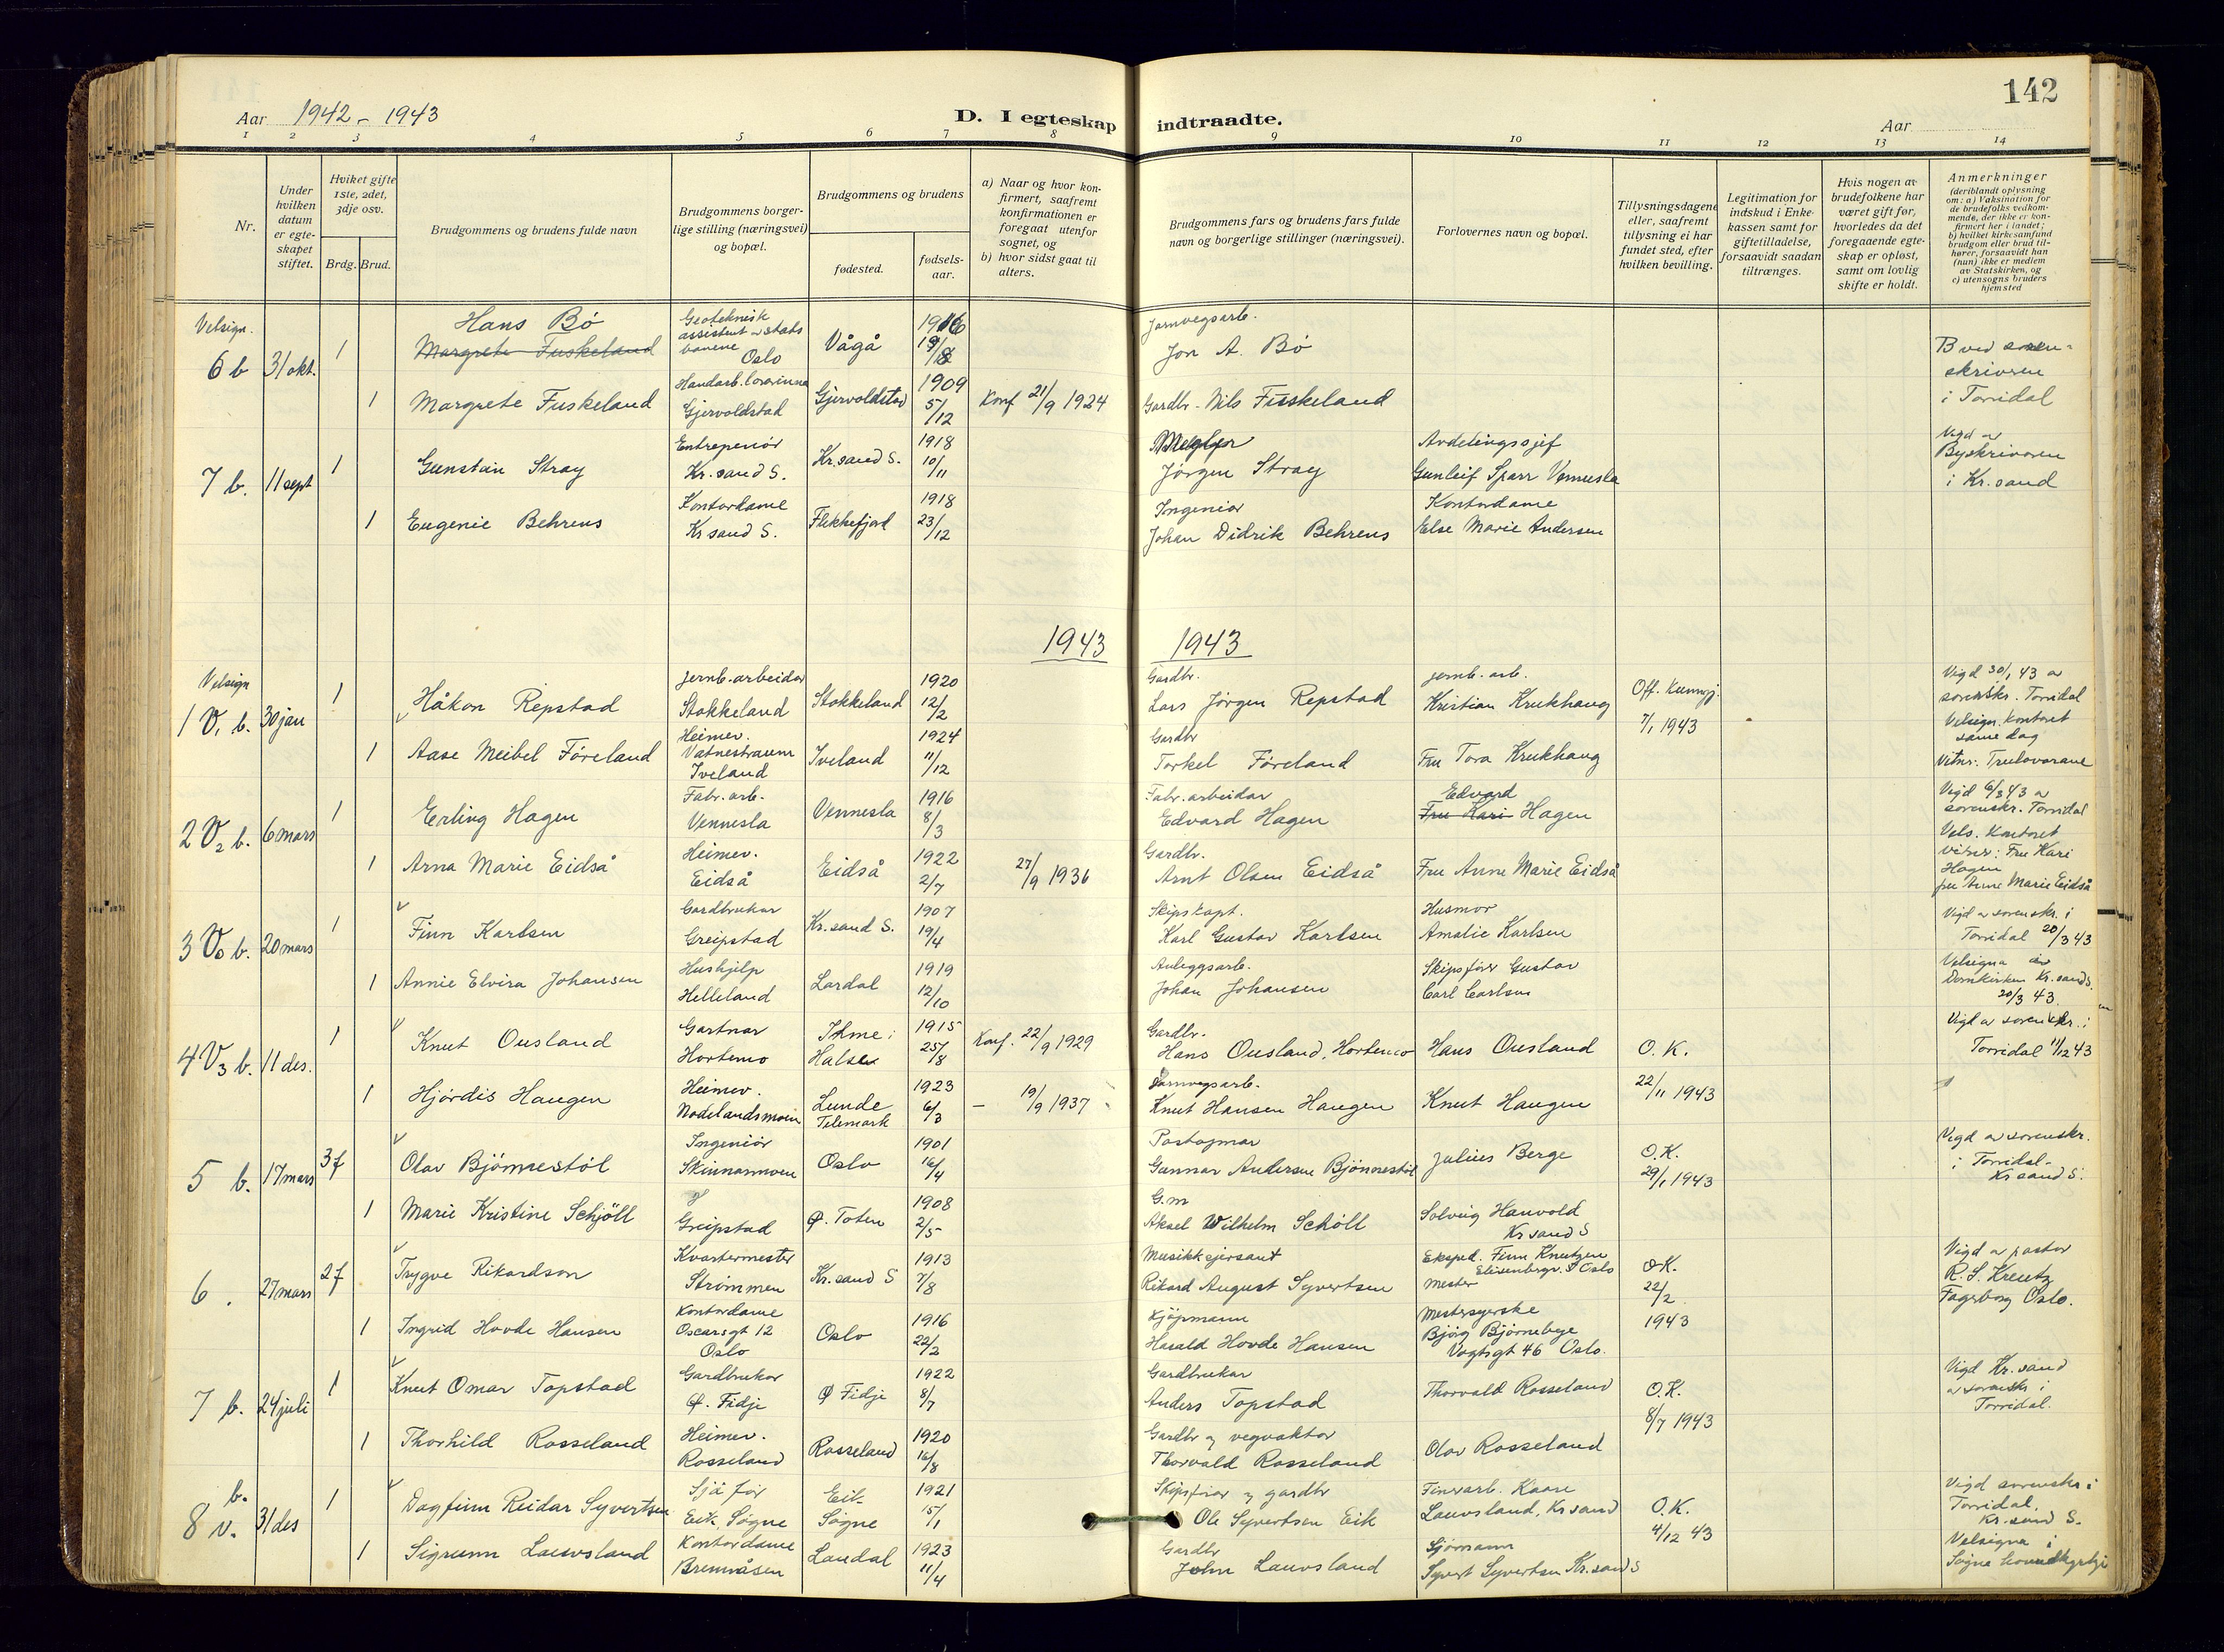 142
Aar 1942 - 1943
D. I egteskap indtraadte.
Aar
1 2 3 4 5 6 7 8 9 10 11 12 13 14
Nr.
Under hvilken datum er egteskapet stiftet.
Hvilket gifte 1ste, 2det, 3dje osv.
Brdg. Brud.
Brudgommens og brudens fulde navn
Brudgommens borgerlige stilling (næringsvei) og bopæl.
Brudgommens og brudens
fødested.
fødselsaar.
a) Naar og hvor konfirmert, saafremt konfirmationen er foregaat utenfor sognet, og
b) hvor sidst gaat til alters.
Brudgommens fars og brudens fars fulde navn og borgerlige stillinger (næringsvei).
Forlovernes navn og bopæl.
Tillysningsdagene eller, saafremt tillysning ei har fundet sted, efter hvilken bevilling.
Legitimation for indskud i Enkekassen samt for giftetilladelse, forsaavidt saadan tiltrænges.
Hvis nogen av brudefolkene har været gift før, hvorledes da det foregaaende egteskap er opløst, samt om lovlig skifte er holdt.
Anmerkninger
(deriblandt oplysning om: a) Vaksination for de brudefolks vedkommende, der ikke er konfirmert her i landet; b) hvilket kirkesamfund brudgom eller brud tilhører, forsaavidt han (hun) ikke er medlem av Statskirken, og c) utensogns bruders hjemsted
Velsign. 6 b 31 okt. 1 Hans Bø Margrete Fuskeland Geoteknisk assistent v stats banene Oslo Vågå 1916 19/8 Jarnvegsarb. Jon A. Bø B ved sorenskrivren i Torridal
1 Margrete Fuskeland Handarb.lærarinna Gjervoldstad Gjervoldstad 1909 5/12 Konf 21/9 1924 Gardbr. Nils Fuskeland
7 b. 11 sept 1 Gunstein Stray Entrepenør Kr.sand S. Kr.sand S. 1918 10/11 Megler Jørgen Stray Avdelingssjef Gunleif Sparr Vennesla Vigd av Byskrivaren i Kr.sand
1 Eugenie Behrens Kontordame Kr sand S. Flekkefjord 1918 23/12 Ingeniør Johan Didrik Behrens Kontordame Else Marie Andersen
1943 1943
Velsign 1 V1 b. 30 jan 1 Håkon Repstad jernb.arbeidar Stokkeland Stokkeland 1920 12/2 Gardbr. Lars Jørgen Repstad jernb. arb. Kristian Krukhaug Off. Kunngj. 7/1 1943 Vigd 30/1 43 av sorenskr. Torridal Velsign. Kontoret same dag Vitnr: Trulovarane
1 Aase Meibel Føreland Heimev. Vatnestraum Iveland Iveland 1924 11/12 Gardbr Torkel Føreland Fru Tora Krukhaug
2 V2 b. 6 mars 1 Erling Hagen Fabr. arb. Vennesla Vennesla 1916 8/3 Fabr. arbeidar Edvard Hagen Edvard Fru Kari Hagen Vigd 6/3 43 av sorenskr. Torridal Vels. Kontoret vitnr: Fru Kari Hagen fru Anne Marie Eidså
1 Arna Marie Eidså Heimev. Eidså Eidså 1922 2/7 27/9 1936 Gardbr. Arnt Olsen Eidså Fru Anne Marie Eidså
3 V0 b. 20 mars 1 Finn Karlsen Gardbrukar Greipstad Kr.sand S. 1907 19/4 Skipskapt. Karl Gustav Karlsen Husmor Amalie Karlsen Vigd av sorenskr. i Torridal 20/3 43 Velsigna i Domkirken Kr.sand S. 20/3 43.
1 Annie Elvira Johansen Hushjelp Helleland Lardal 1919 12/10 Anleggsarb. Johan Johansen Skipsfører Gustav Carl Carlsen
4 V3 b. 11 des. 1 Knut Ousland Gartnar Hortemo Halse 1915 25/8 Konf. 22/9 1929 Gardbr. Hans Ousland, Hortemo Hans Ousland O. K. 22/11 1943 Vigd av sorenskr. i Torridal 11/12 43
1 Hjørdis Haugen Heimev. Nodelandsmoen Lunde Telemark 1923 6/3 - 19/9 1937 Jarnvegsarb. Knut Hansen Haugen Knut Haugen
5 b. 17 mars 3 f Olav Bjønnestøl Ingeniør Skinnarmoen Oslo 1901 16/4 Postopnar Gunnar Andersen Bjønnestøl Julius Berge O.K. 29/1 1943 Vigd av sorenskr. i Torridal - Kr sand S.
1 Marie Kristine Schjøll Greipstad Ø. Toten 1908 2/5 G.m Aksel Wilhelm Schøll Solveig Hanvold Kr sand S
6 . 27 mars 2 f Trygve Rikardson Kvartermester Strømmen Kr.sand S 1913 7/8 Musikksjersant Rikard August Syvertsen Eksped. Finn Knutzen Elisenbergv. 5 Oslo O.K. 22/2 1943 Vigd av pastor R. S. Kreutz Fagerborg Oslo.
1 Ingrid Hovde Hansen Kontordame Oscarsgt 12 Oslo Oslo 1916 22/2 Kjøpmann Harald Hovde Hansen Bjørg Bjørnebye Vogtsgt 46 Oslo.
7 b. 24 juli 1 Knut Omar Topstad Gardbrukar Ø. Fidje Ø Fidje 1922 8/7 Gardbrukar Anders Topstad Thorvald Rosseland O.K. 8/7 1943 Vigd Kr. sand av sorenskr i Torridal.
1 Thorhild Rosseland Heimev. Rosseland Rosseland 1920 16/8 Gardbr og vegvaktar Thorvald Rosseland Olav Rosseland
8 b. v. 31 des 1 Dagfinn Reidar Syvertsen Sjåfør Eik, Søgne Eik Søgne 1921 15/1 Skipsfører og gardbr Ole Syvertsen Eik Kaare Lauvsland, Kr sand O.K. 4/12 43 Vigd sorenskr i Torridal, Kr. sand S. Velsigna i Søgne hovudkyrkje
1 Sigrunn Lauvsland Kontordame Brennåsen Laudal 1923 11/4 Gardbr John Lauvsland Sjømann Syvert Syvertsen Kr.sand S